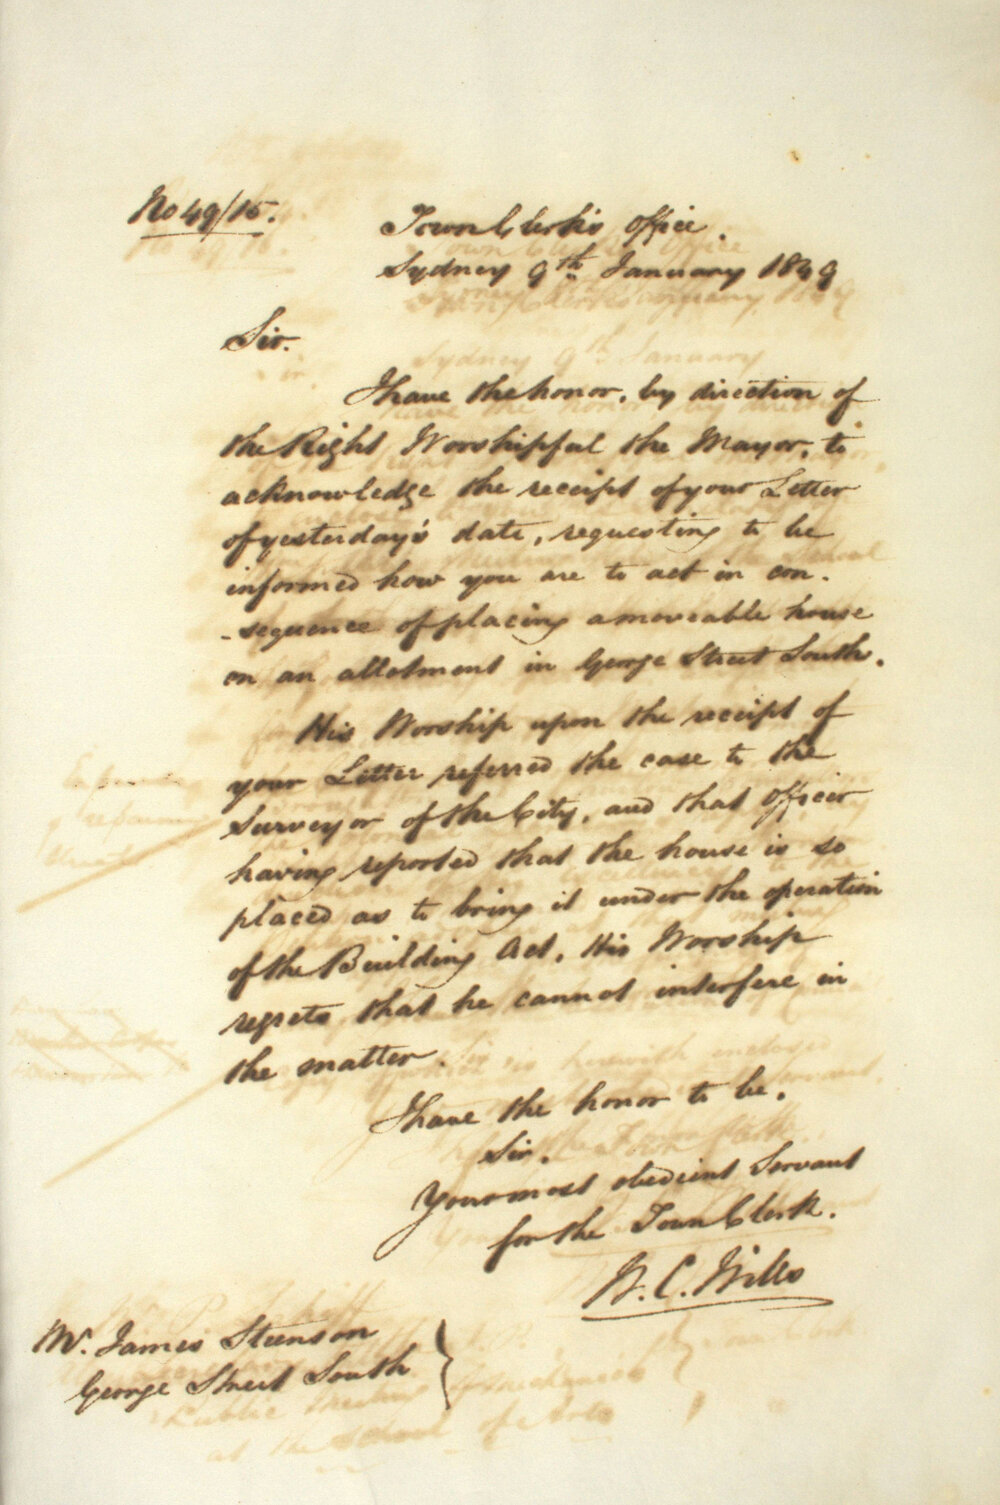 No 49/15.
Town Clerk's Office.
Sydney 9th January 1849
Sir.
I have the honor, by direction of
the Right Worshipful the Mayor, to
acknowledge the receipt of your Letter
of yesterday's date, requesting to be
informed how you are to act in con-
-sequence of placing a moveable house
on an allotment in George Street South.
His Worship upon the receipt of
your Letter referred the case to the
Surveyor of the City, and that Officer
having reported that the house is so
placed as to bring it under the operation
of the Building Act, His Worship
regrets that he cannot interfere in
the matter.
I have the honor to be,
Sir,
Your most obedient Servant
for the Town Clerk.
W. C. Wills
Mr. James Steenson
George Street South